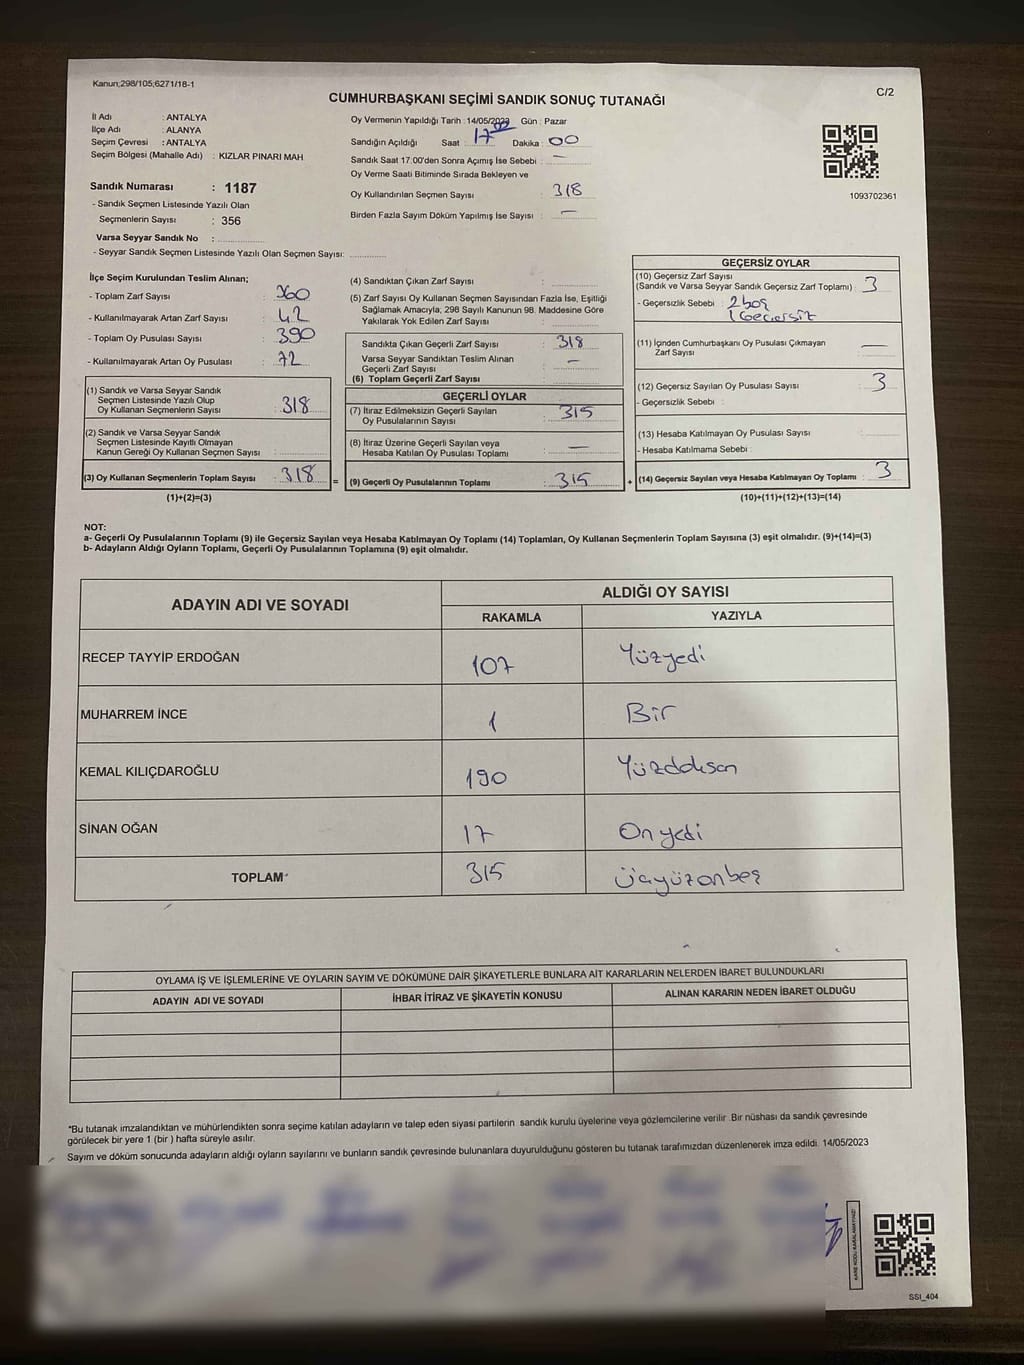 Kanun;298/105;6271/18-1
C/2
CUMHURBAŞKANI SEÇİMİ SANDIK SONUÇ TUTANAĞI
İl Adı : ANTALYA
İlçe Adı : ALANYA
Seçim Çevresi : ANTALYA
Seçim Bölgesi (Mahalle Adı) : KIZLAR PINARI MAH
Sandık Numarası : 1187
- Sandık Seçmen Listesinde Yazılı Olan
Seçmenlerin Sayısı : 356
Varsa Seyyar Sandık No :
- Seyyar Sandık Seçmen Listesinde Yazılı Olan Seçmen Sayısı:
Oy Vermenin Yapıldığı Tarih : 14/05/2023 Gün : Pazar
Sandığın Açıldığı Saat : 17 00 Dakika : 00
Sandık Saat 17:00'den Sonra Açımış İse Sebebi : —
Oy Verme Saati Bitiminde Sırada Bekleyen ve
Oy Kullandırılan Seçmen Sayısı : 318
Birden Fazla Sayım Döküm Yapılmış İse Sayısı : —
1093702361
İlçe Seçim Kurulundan Teslim Alınan;
- Toplam Zarf Sayısı : 360
- Kullanılmayarak Artan Zarf Sayısı : 42
- Toplam Oy Pusulası Sayısı : 390
- Kullanılmayarak Artan Oy Pusulası : 72
(1) Sandık ve Varsa Seyyar Sandık
Seçmen Listesinde Yazılı Olup
Oy Kullanan Seçmenlerin Sayısı : 318
(2) Sandık ve Varsa Seyyar Sandık
Seçmen Listesinde Kayıtlı Olmayan
Kanun Gereği Oy Kullanan Seçmen Sayısı :
(3) Oy Kullanan Seçmenlerin Toplam Sayısı : 318 =
(1)+(2)=(3)
(4) Sandıktan Çıkan Zarf Sayısı :
(5) Zarf Sayısı Oy Kullanan Seçmen Sayısından Fazla İse, Eşitliği
Sağlamak Amacıyla, 298 Sayılı Kanunun 98. Maddesine Göre
Yakılarak Yok Edilen Zarf Sayısı :
Sandıkta Çıkan Geçerli Zarf Sayısı : 318
Varsa Seyyar Sandıktan Teslim Alınan
Geçerli Zarf Sayısı : —
(6) Toplam Geçerli Zarf Sayısı :
GEÇERLİ OYLAR
(7) İtiraz Edilmeksizin Geçerli Sayılan
Oy Pusulalarının Sayısı : 315
(8) İtiraz Üzerine Geçerli Sayılan veya
Hesaba Katılan Oy Pusulası Toplamı : —
(9) Geçerli Oy Pusulalarının Toplamı : 315 +
GEÇERSİZ OYLAR
(10) Geçersiz Zarf Sayısı
(Sandık ve Varsa Seyyar Sandık Geçersiz Zarf Toplamı) : 3
- Geçersizlik Sebebi : 2 boş
1 Geçersiz
(11) İçinden Cumhurbaşkanı Oy Pusulası Çıkmayan
Zarf Sayısı : —
(12) Geçersiz Sayılan Oy Pusulası Sayısı : 3
- Geçersizlik Sebebi :
(13) Hesaba Katılmayan Oy Pusulası Sayısı :
- Hesaba Katılmama Sebebi :
(14) Geçersiz Sayılan veya Hesaba Katılmayan Oy Toplamı : 3
(10)+(11)+(12)+(13)=(14)
NOT:
a- Geçerli Oy Pusulalarının Toplamı (9) ile Geçersiz Sayılan veya Hesaba Katılmayan Oy Toplamı (14) Toplamları, Oy Kullanan Seçmenlerin Toplam Sayısına (3) eşit olmalıdır. (9)+(14)=(3)
b- Adayların Aldığı Oyların Toplamı, Geçerli Oy Pusulalarının Toplamına (9) eşit olmalıdır.
ADAYIN ADI VE SOYADI
ALDIĞI OY SAYISI
RAKAMLA YAZIYLA
RECEP TAYYİP ERDOĞAN 107 Yüzyedi
MUHARREM İNCE 1 Bir
KEMAL KILIÇDAROĞLU 190 Yüzdoksan
SİNAN OĞAN 17 Onyedi
TOPLAM* 315 Üçyüzonbeş
OYLAMA İŞ VE İŞLEMLERİNE VE OYLARIN SAYIM VE DÖKÜMÜNE DAİR ŞİKAYETLERLE BUNLARA AİT KARARLARIN NELERDEN İBARET BULUNDUKLARI
ADAYIN ADI VE SOYADI İHBAR İTİRAZ VE ŞİKAYETİN KONUSU ALINAN KARARIN NEDEN İBARET OLDUĞU
*Bu tutanak imzalandıktan ve mühürlendikten sonra seçime katılan adayların ve talep eden siyasi partilerin sandık kurulu üyelerine veya gözlemcilerine verilir .Bir nüshası da sandık çevresinde
görülecek bir yere 1 (bir ) hafta süreyle asılır.
Sayım ve döküm sonucunda adayların aldığı oyların sayılarını ve bunların sandık çevresinde bulunanlara duyurulduğunu gösteren bu tutanak tarafımızdan düzenlenerek imza edildi. 14/05/2023
KARE KODU KARALAMAYINIZ!
SSİ_404